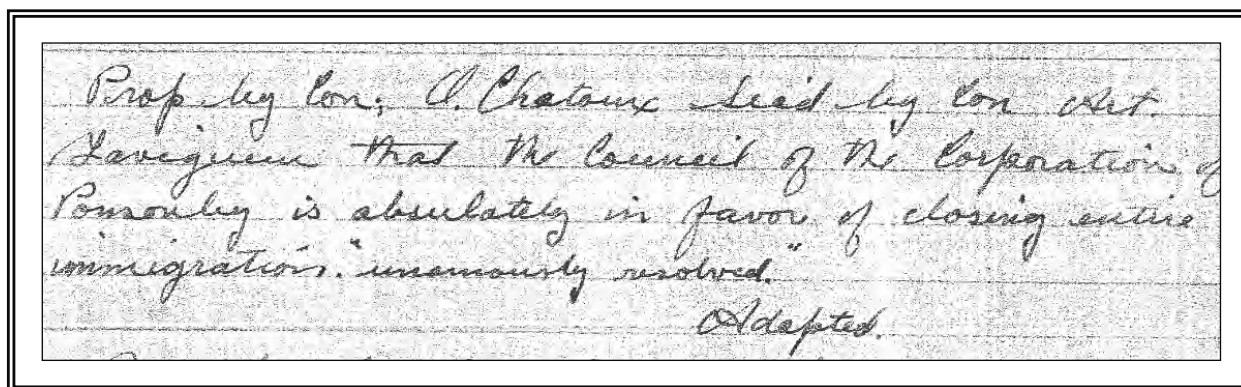 Prop by Con; A. Chatoux Secd by Con Art.
Lavigueur that the Council of the Corporation of
Ponsonby is absulately in favor of closing entire
immigration. "unamously resolved."
Adapted.